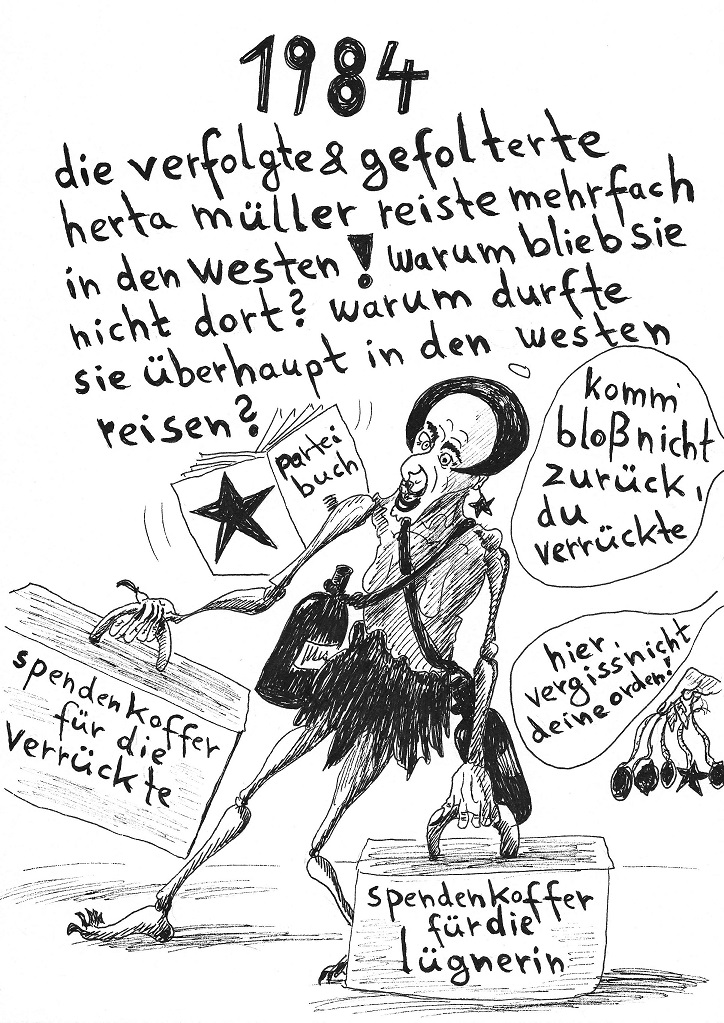 1984
die verfolgte & gefolterte
herta müller reiste mehrfach
in den westen! warum blieb sie
nicht dort? warum durfte
sie überhaupt in den westen
reisen?
partei
buch
komm
bloß nicht
zurück,
du
verrückte
hier,
vergiss nicht
deine orden!
spendenkoffer
für die
verrückte
spendenkoffer
für die
lügnerin